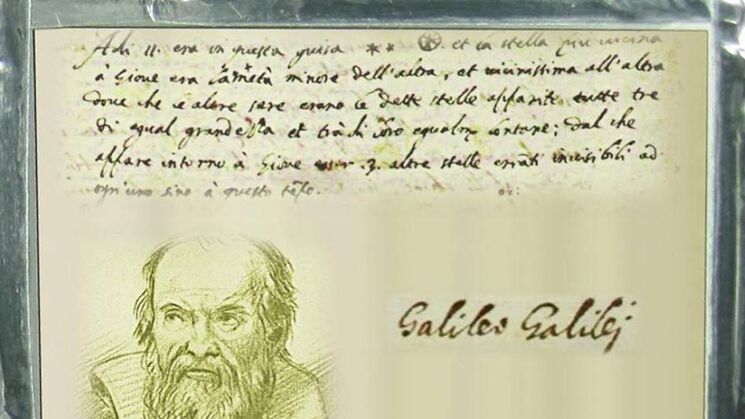 Adi 11. era in questa guisa ** ✪. et la stella più vicina
à Giove era la metà minore dell'altra, et vicinissima all'altra
dove che le altre sere erano le dette stelle apparite tutte tre
di egual grandezza et trà di loro egualm. lontane; dal che
appare intorno à Giove esser .3. altre stelle erranti invisibili ad
ogn'uno sino à questo tẽpo.
Galileo Galilei